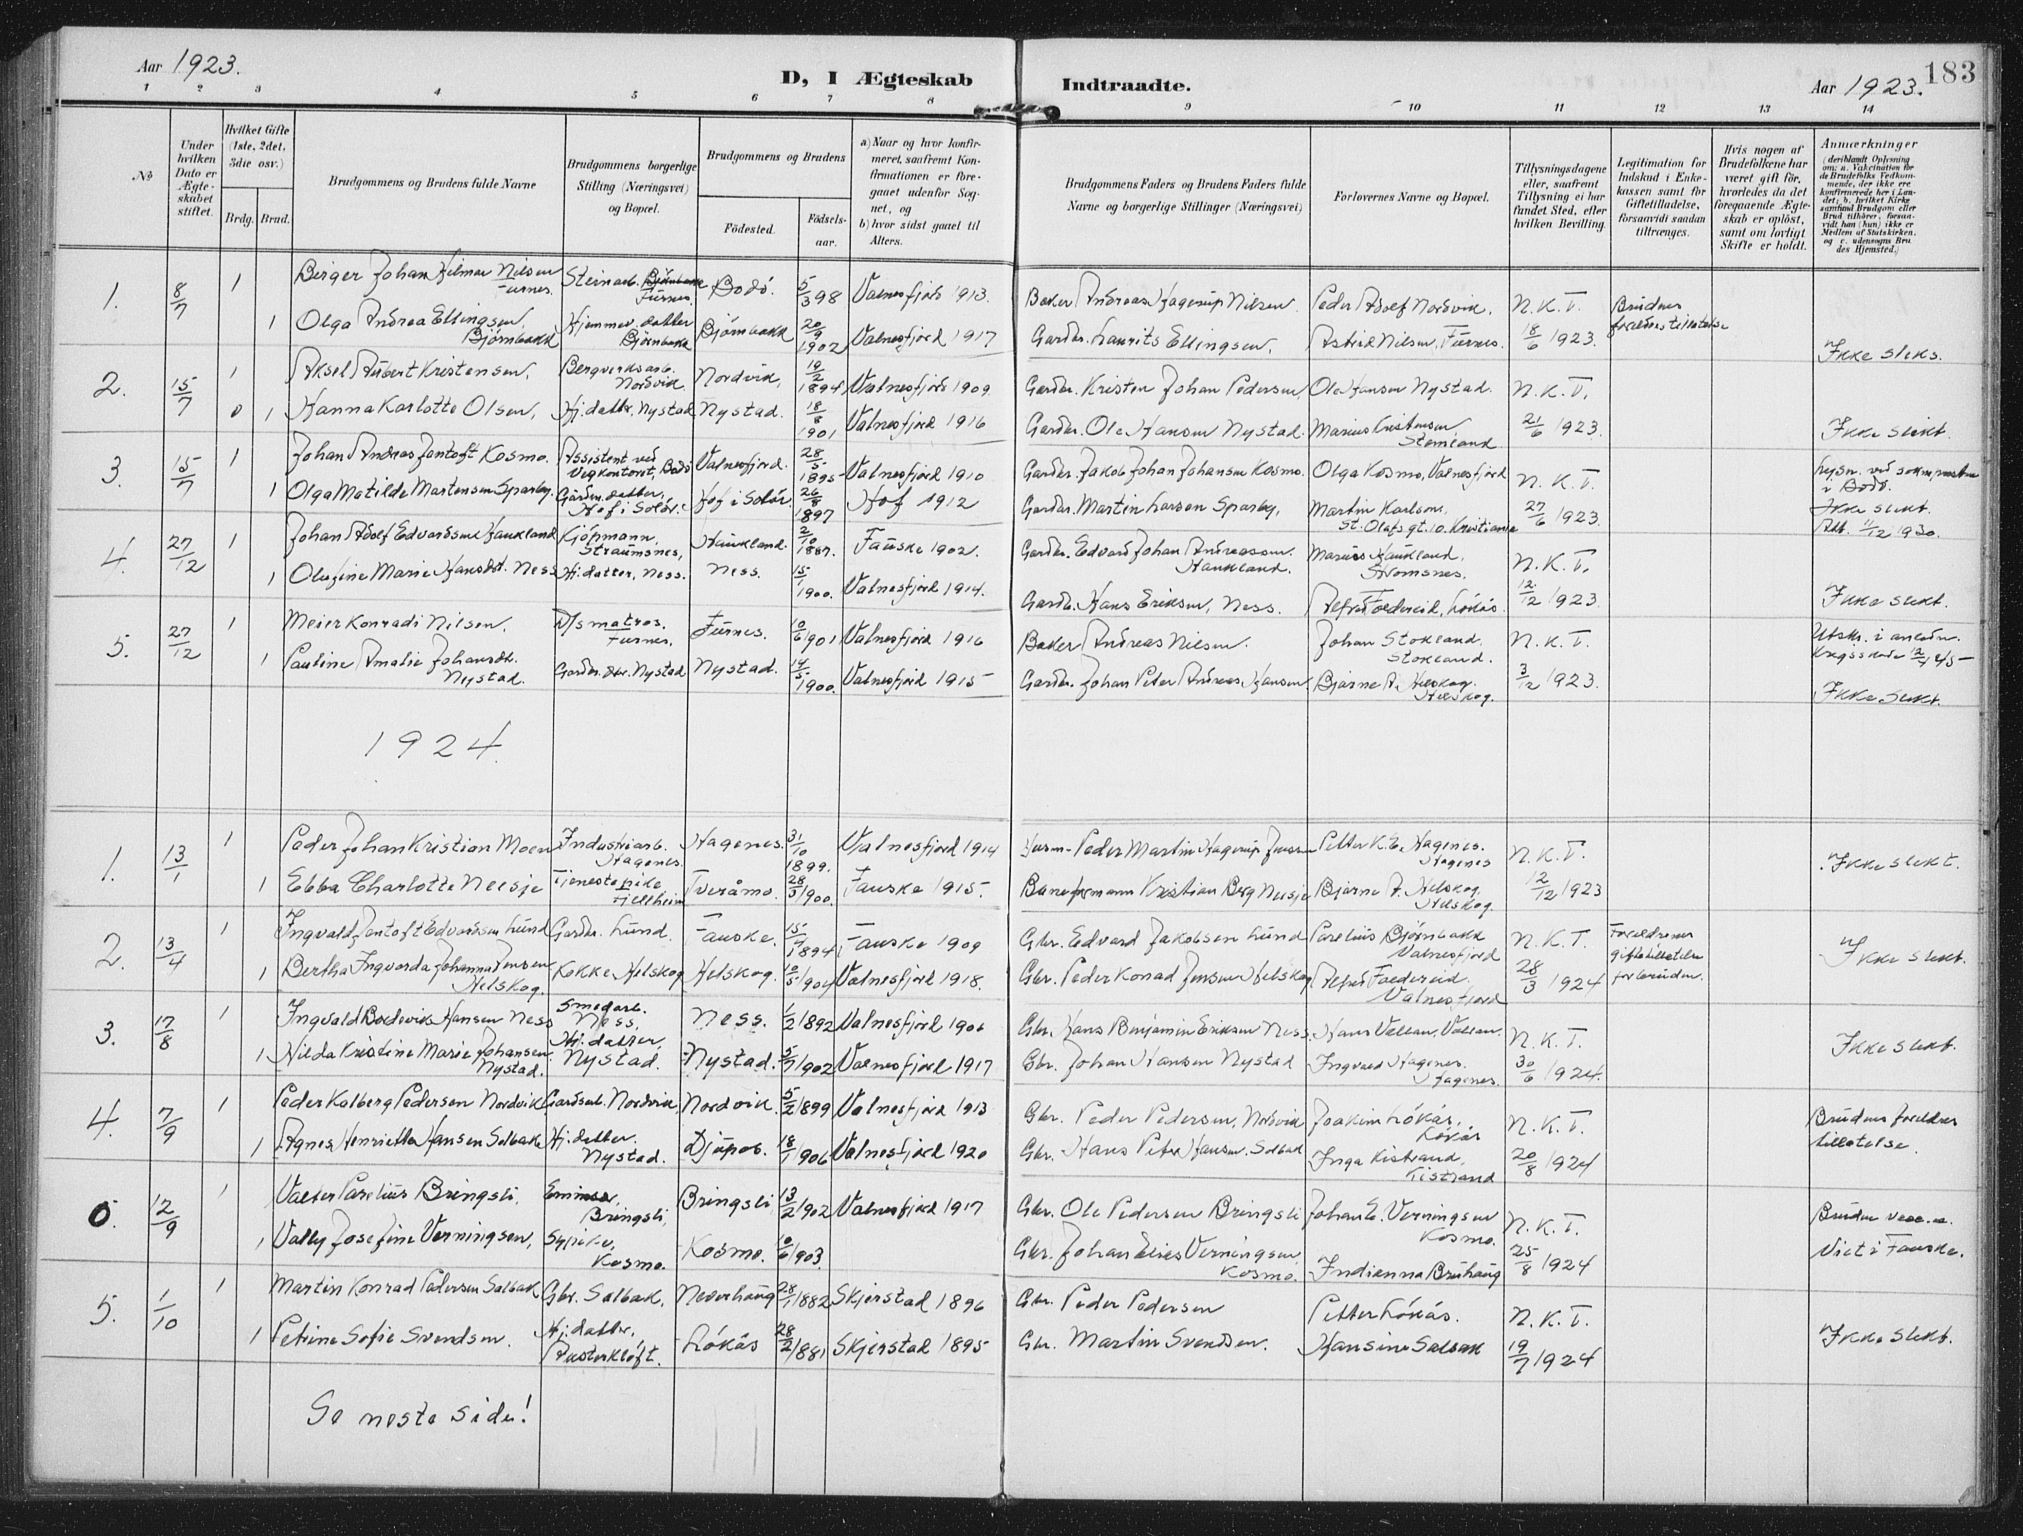 Aar 1923.
D, I Ægteskab
Indtraadte.
Aar 1923.
183
1 2 3 4 5 6 7 8 9 10 11 12 13 14
No
Under hvilken Dato er Ægteskabet stiftet.
Hvilket Gifte (1ste, 2det, 3die osv.)
Brdg. Brud.
Brudgommens og Brudens fulde Navne
Brudgommens borgerlige Stilling (Næringsvei) og Bopæl.
Brudgommens og Brudens
Födested.
Födsels-aar.
a) Naar og hvor konfirmeret, saafremt Konfirmationen er foregaaet udenfor Sognet, og
b) hvor sidst gaaet til Alters.
Brudgommens Faders og Brudens Faders fulde Navne og borgerlige Stillinger (Næringsvei)
Forlovernes Navne og Bopæl.
Tillysningsdagene eller, saafremt Tillysning ei har fundet Sted, efter hvilken Bevilling.
Legitimation for Indskud i Enkekassen samt for Giftetilladelse, forsaavidt saadan tiltrænges.
Hvis nogen af Brudefolkene har været gift för, hvorledes da det foregaaende Ægteskab er oplöst, samt om lovligt Skifte er holdt.
Anmærkninger
(deriblandt Oplysning om: a. Vakcination för de Brudefolks Vedkommende, der ikke ere konfirmerede her i Landet; b. hvilket Kirkesamfund Brudgom eller Brud tilhörer, forsaavidt han (hun) ikke er Medlem af Statskirken, og c. udensogns Brudes Hjemsted.)
1. 8/7 1 Berger Johan Hilmar Nilsen Furnes. Steinarb. Furnes. Bodö. 5/3 98 Valnesfjord 1913. Baker Andreas Hagerup Nilsen. Peder Adolf Nordvik. N.K.T. Brudens foreldres tillatelse
1 Olga Andrea Ellingsen Björnbakk Hjemmev. datter Björnbakk Björnbakk 20/9 1902 Valnesfjord 1917 Gardbr. Laurits Ellingsen. Astrid Nilsen, Furnes. 18/6 1923. Ikke slekt.
2. 15/7 1 Aksel Albert Kristensen, Bergverksarb. Nordvik Nordvik, 19/2 1894 Valnesfjord 1909. Gardbr. Kristen Johan Pedersen Ole Hansen Nystad. N.K.T.
0 1 Hanna Karlotte Olsen, Hj. datter, Nystad Nystad. 18/8 1901 Valnesfjord 1916 Gardbr. Ole Hansen Nystad. Marius Kristensen Stemland 21/6 1923. Ikke slekt.
3. 15/7 1 Johan Andreas Jentoft Kosmo. Assistent ved Vegkontoret, Bodö Valnesfjord. 28/5 1895 Valnesfjord 1910 Gardbr. Jakob Johan Johansen Kosmo. Olga Kosmo, Valnesfjord N.K.T. Lysn. ved i Bodö.
1 Olga Matilde Martensen Sparby. Gardm. datter, Hof i Solör. Hof i Solör. 26/8 1897 Hof 1912 Gardbr. Martin Larsen Sparby, Martin Karlsen, St. Olafs gt. 10. Kristiania 27/6 1923. Ikke slekt. Att. 4/12 1930.
4. 27/12 1 Johan Adolf Edvardsen Haukland Kjöpmann, Straumsnes, Haukland. 2/10 1887. Fauske 1902. Gardbr. Edvard Johan Andreassen Haukland. Marius Haukland, Stromsnes. N.K.T.
1 Olufine Marie Hansdt. Ness Hj. datter, Ness. Ness. 15/1 1900. Valnesfjord 1914. Gardb. Hans Eriksen, Ness. Alfred Foedereid, Lökås. 12/12 1923 Ikke slekt.
5. 27/12 1 Meier Konradi Nilsen. D/s matros. Furnes. Furnes. 10/6 1901 Valnesfjord 1916 Baker Andreas Nilsen. Johan Stokland. Stokland. N.K.T. Utskr. i
1 Pauline Amalie Johansdt. Nystad. Gardbr. dtr. Nystad Nystad. 14/5 1900. Valnesfjord 1915 Gardbr. Johan Peter Andreas Hansen Bjarne A. Helskog. Helskog. 3/12 1923. Ikke slekt.
1924
1. 13/1 1 Peder Johan Kristian Moen Industriarb. Hagenes. Hagenes. 31/10 1899. Valnesfjord 1914 Husm. Peder Martin Hagerup Jensen Petter K.E. Hagenes. Hagenes N.K.T. Ikke slekt.
1 Ebba Charlotte Neesje Tjenestepike Fjellheim Tveråmo. 28/3 1900. Fauske 1915. Baneformann Kristian Berg Neesje Bjarne A. Helskog. Helskog. 12/12 1923
2. 13/4 1 Ingvald Jentoft Edvardsen Lund Gardbr. Lund. Fauske. 15/7 1894 Fauske 1909 Gbr. Edvard Jakobsen Lund Parelius Björnbakk Valnesfjord N.K.T. Foreldrenes giftetillatelse for bruden. Ikke slekt.
1 Bertha Ingvarda Johanna Jensen Helskog. Kokke Helskog Helskog. 10/5 1904 Valnesfjord 1918. Gbr. Peder Konrad Jensen Helskog Alfred Foedereid. Valnesfjord 28/3 1924
3. 17/8 1 Ingvald Bodevik Hansen Ness Smedarb. Ness. Ness. 1/2 1892 Valnesfjord 1906 Gbr. Hans Benjamin Eriksen Ness. Hans Vallan. Vallan. N.K.T. Ikke slekt.
1 Hilda Kristine Marie Johansen Nystad. Hj. datter, Nystad. Nystad. 5/7 1902 Valnesfjord 1917 Gbr. Johan Hansen Nystad Ingvald Hagenes. Hagenes. 30/6 1924.
4. 7/9 1 Peder Kolberg Pedersen Nordvik Gardsarb. Nordvik Nordvik. 5/2 1899 Valnesfjord 1913 Gbr. Peder Pedersen, Nordvik Joakim Lökås, Lökås N.K.T. Brudens foreldres tillatelse.
1 Agnes Henriette Hansen Salbak Hj. datter. Nystad. Djupos. 18/1 1906 Valnesfjord 1920 Gbr. Hans Peter Hansen Salbak Inga Kistrand, Kistrand 20/8 1924
0. 12/9 1 Valter Parelius Bringsli. Bringsli Bringsli 13/2 1902 Valnesfjord 1917 Gbr. Ole Pedersen Bringsli Johan E. Verningsen Kosmo. N.K.T.
1 Vally Josefine Verningsen, Sypike, Kosmo. Kosmo. 10/6 1903. Gbr. Johan Elias Verningsen Kosmo. Indianna Bruhaug 25/8 1924 Viet i Fauske.
5. 1/10 1 Martin Konrad Pedersen Salbak Gbr. Salbak. Neverhaug 28/1 1882 Skjerstad 1896 Gbr. Peder Pedersen Petter Lökås. N.K.T. Ikke slekt.
1 Petrine Sofie Svendsen. Hj. datter, Austerkløft. Lökås 28/2 1881 Skjerstad 1895 Gbr. Martin Svendsen. Hansine Salbak 19/7 1924
Se neste side!